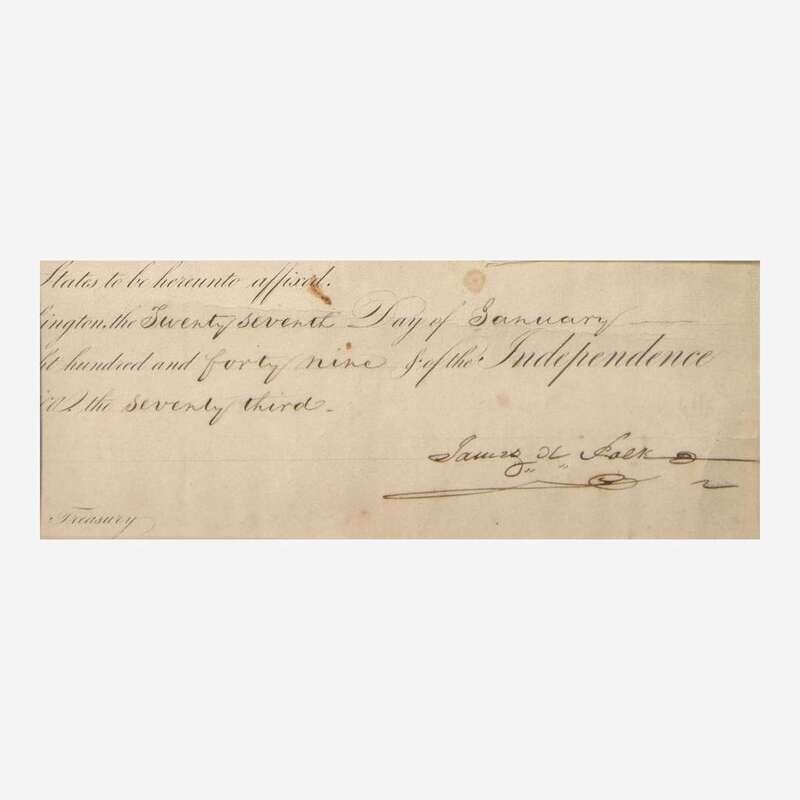 States to be hereunto affixed.
ington, the Twenty seventh Day of January
ht hundred and forty nine & of the Independence
the seventy third.
James K Polk
Treasury